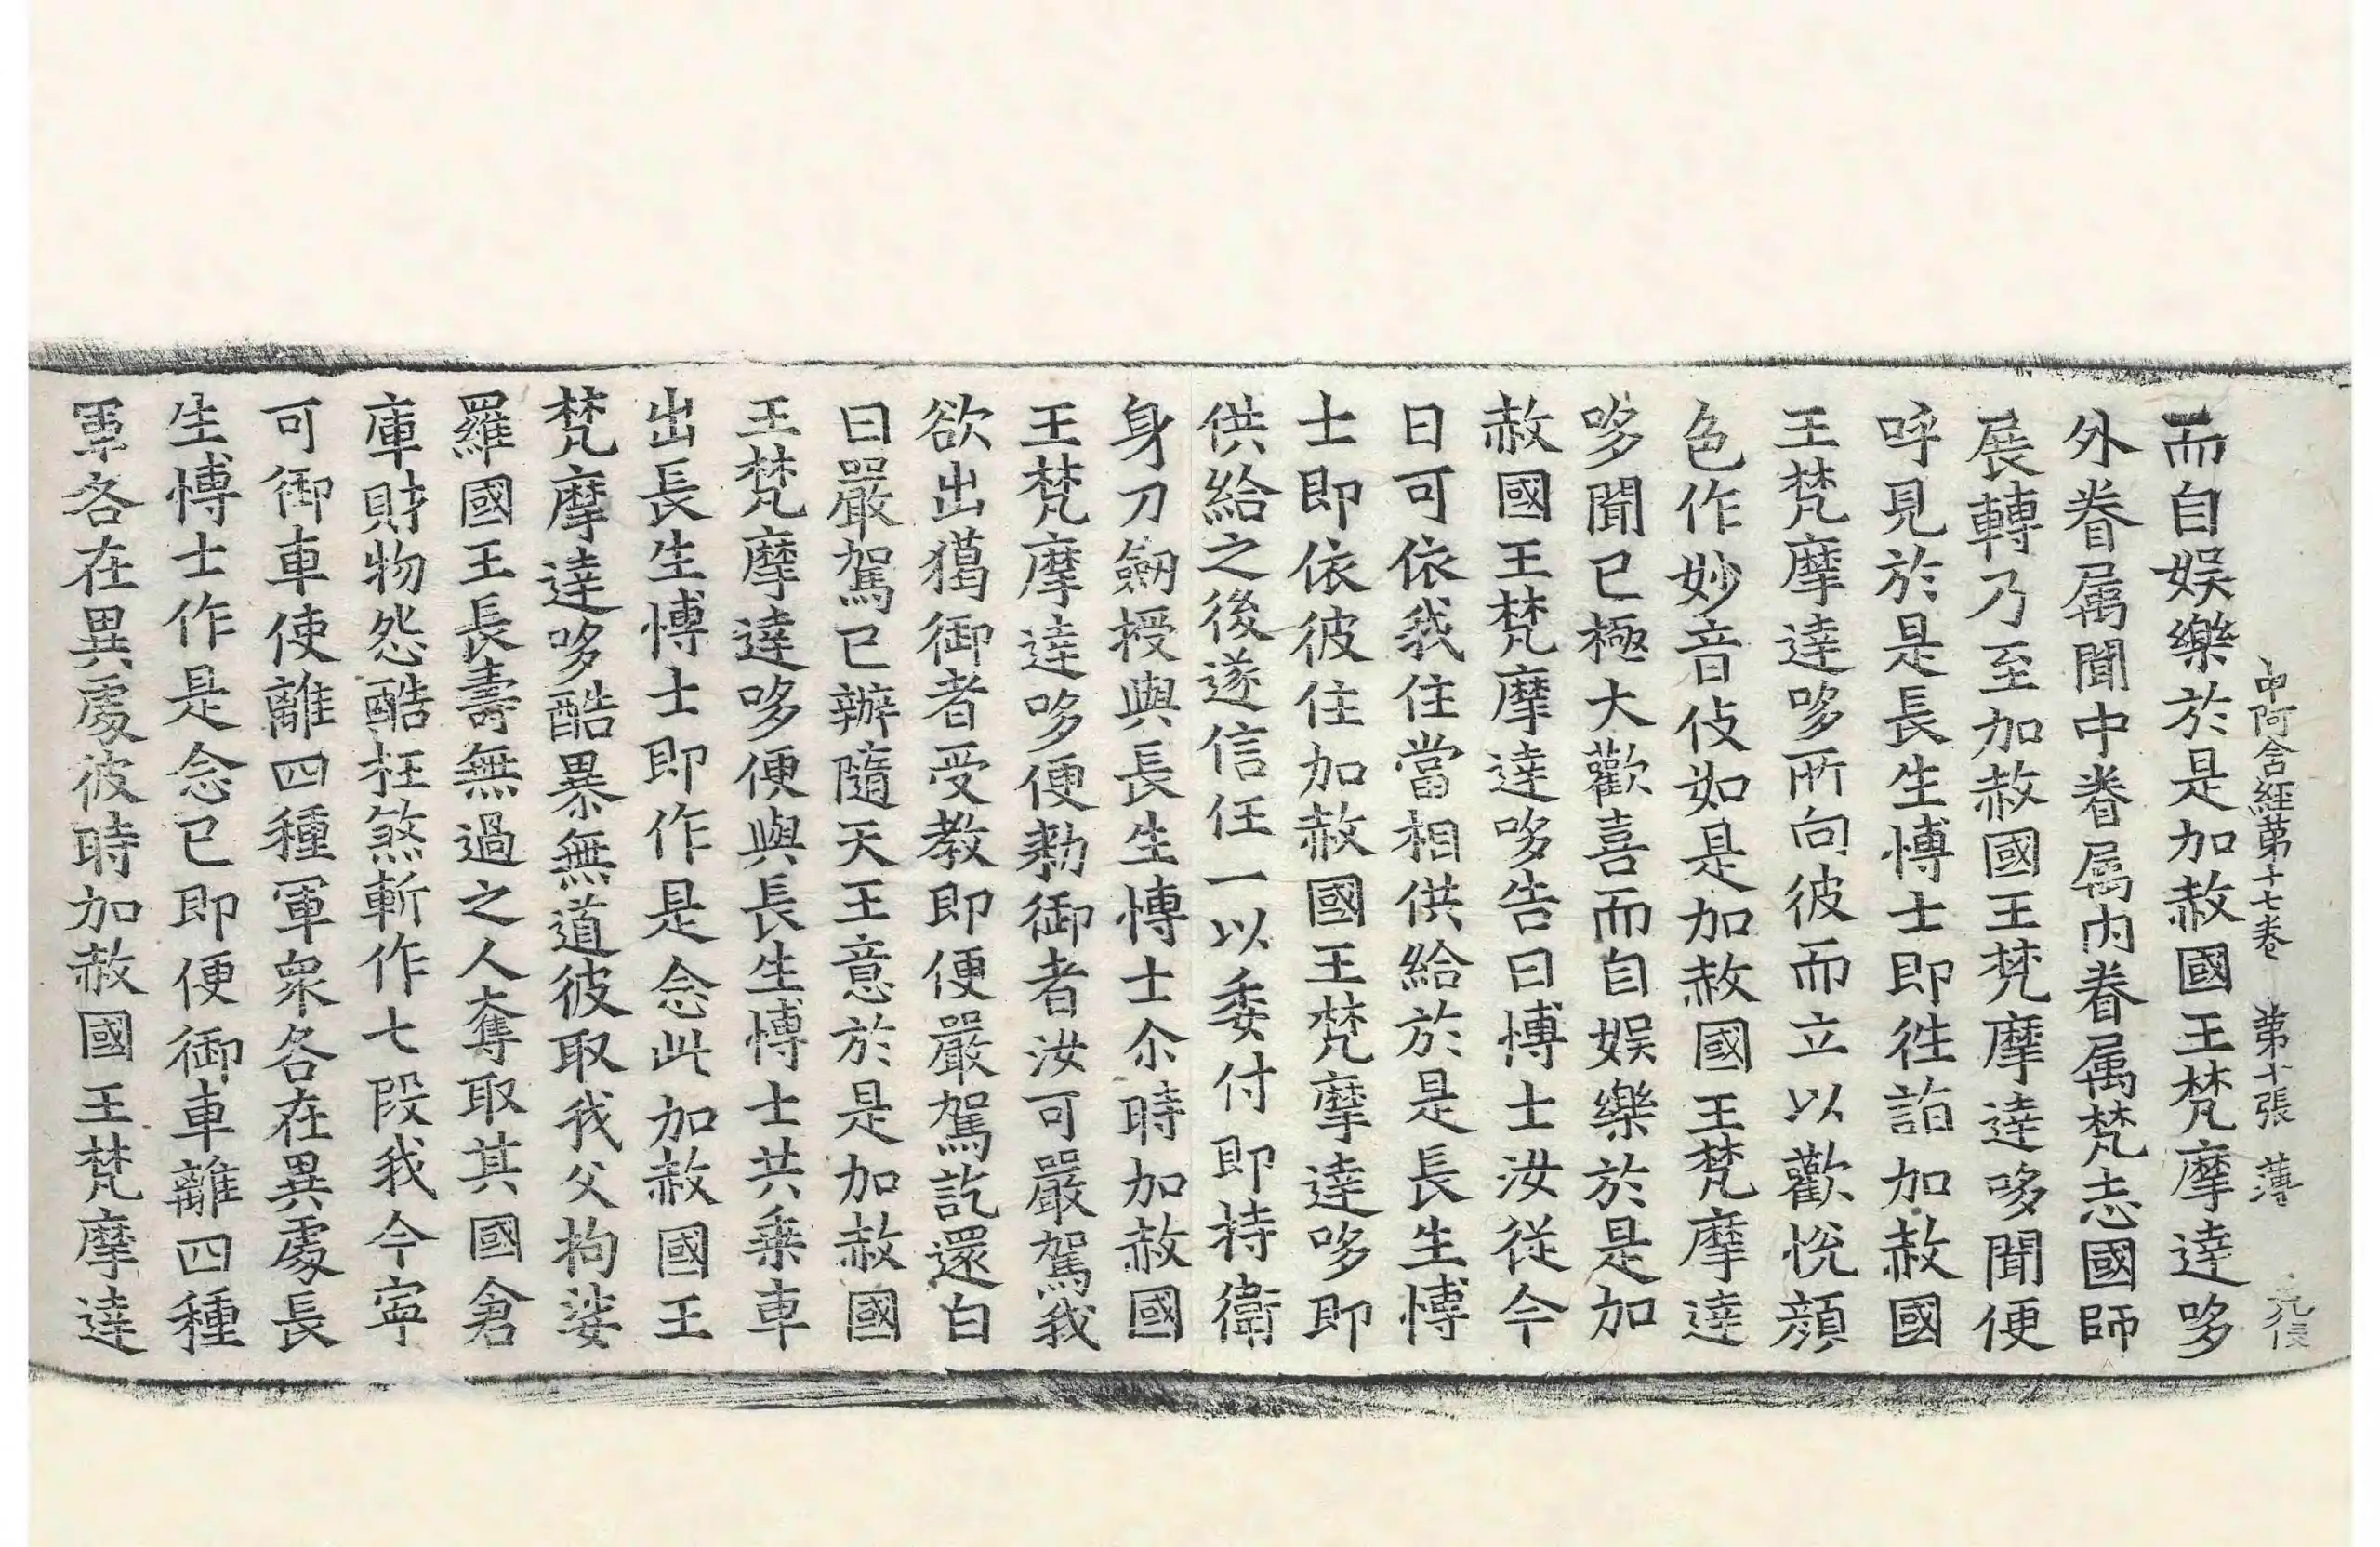 中阿含經第十七卷 第十張 薄
而自娛樂於是加赦國王梵摩達哆
外眷属聞中眷属内眷属梵志國師
展轉乃至加赦國王梵摩達哆聞便
呼見於是長生博士即徃詣加赦國
王梵摩達哆所向彼而立以歡悅顔
色作妙音伎如是加赦國王梵摩達
哆聞已極大歡喜而自娛樂於是加
赦國王梵摩達哆告曰博士汝從今
日可依我住當相供給於是長生博
士即依彼住加赦國王梵摩達哆即
供給之後遂信任一以委付即持衛
身刀劒授與長生博士尒時加赦國
王梵摩達哆便勑御者汝可嚴駕我
欲出獦御者受教即便嚴駕訖還白
曰嚴駕已辦隨天王意於是加赦國
王梵摩達哆便與長生博士共乗車
出長生博士即作是念此加赦國王
梵摩達哆酷暴無道彼取我父拘娑
羅國王長壽無過之人奪取其國倉
庫財物怨酷枉煞斬作七段我今寧
可御車使離四種軍衆各在異處長
生博士作是念已即便御車離四種
軍各在異處彼時加赦國王梵摩達